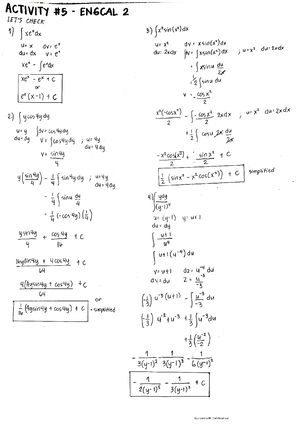 ACTIVITY #5 - ENGCAL 2
LET'S CHECK
1) ∫xeˣdx
u = x dv = eˣ
du = dx v = eˣ
xeˣ - ∫eˣdx
xeˣ - eˣ + C
or
eˣ(x-1) + C
2) ∫y cos 4y dy
u = y ∫dv = ∫cos4y dy
du = dy v = ∫cos4y dy ; u = 4y
v = sin4y/4
y(sin4y/4) - 1/4 ∫sin4y dy ; u = 4y
- 1/4 ∫sinu du/4
- 1/4 (-cos4y)(1/4)
y sin4y/4 + cos4y/16 + C
16y sin4y + 4cos4y/64 + C
4(4y sin4y + cos4y)/64 + C
or
1/16 (4y sin4y + cos4y) + C simplified
3) ∫x³sin(x²)dx
u = x² dv = x sin(x²)dx
du = 2x dx ∫v = ∫x sin(x²)dx ; u = x² du = 2x dx
= ∫x sin u du/2x
= 1/2 ∫sin u du
v = -cos x²/2
x²(-cos x²)/2 - ∫-cos x²/2 2x dx ; u = x² du = 2x dx
-x²cos(x²)/2 + sin x²/2 + C
1/2 (sin x² - x²cos(x²)) + C simplified
4) ∫ydy/(y-1)⁴
u = (y-1) y = u+1
du = dy
∫ u+1/u⁴
∫u+1(u⁻⁴)du
v = u+1 dz = u⁻⁴du
dv = du z = u⁻³/-3
(-1/3) u⁻³(u+1) - ∫u⁻³/-3 du
(-1/3) u⁻² + u⁻³ + 1/3 ∫u⁻³du
+ 1/3 (u⁻²/-2)
- 1/3(y-1)² - 1/3(y-1)³ - 1/6(y-1)²
- 1/2(y-1)² - 1/3(y-1)³ + C